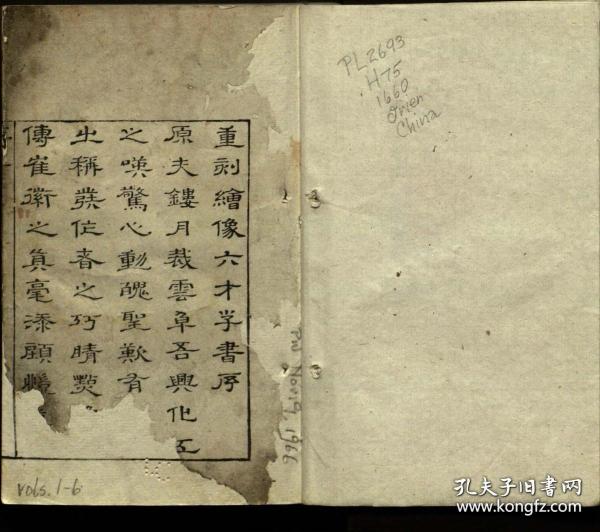 重刻繪像六才子書序
原夫鏤月裁雲卓吾興化工
之嘆驚心動魄聖歎有
出稱發伫春之巧晴熒
傳崔徽之真毫添顧
序
PL2693
H75
1660
Orien
China
Pui Nov. 19, 1966
vols. 1-6
孔夫子旧书网
www.kongfz.com